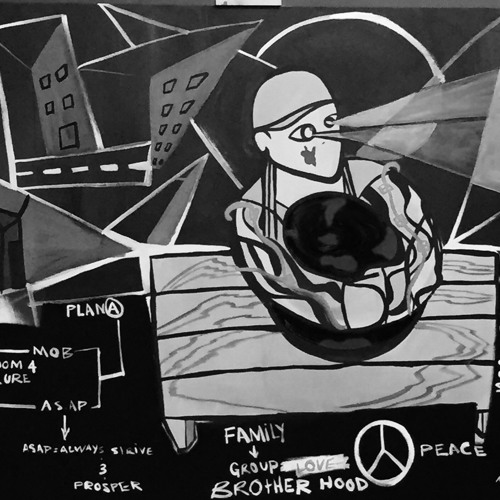 PLAN A
MOB
OOM 4
URE
ASAP
ASAP=ALWAYS STRIVE
&
PROSPER
FAMILY
GROUP LOVE
BROTHER HOOD
PEACE